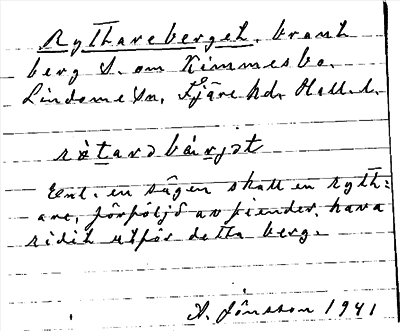 Ryttareberget, brant
berg S. om Kimmesbo.
Lindome Sn, Fjäre hd. Hall. l.
Enl. en sägen skall en rytt=
are, förföljd av fiender, hava
ridit utför detta berg.
A. Jönsson 1941